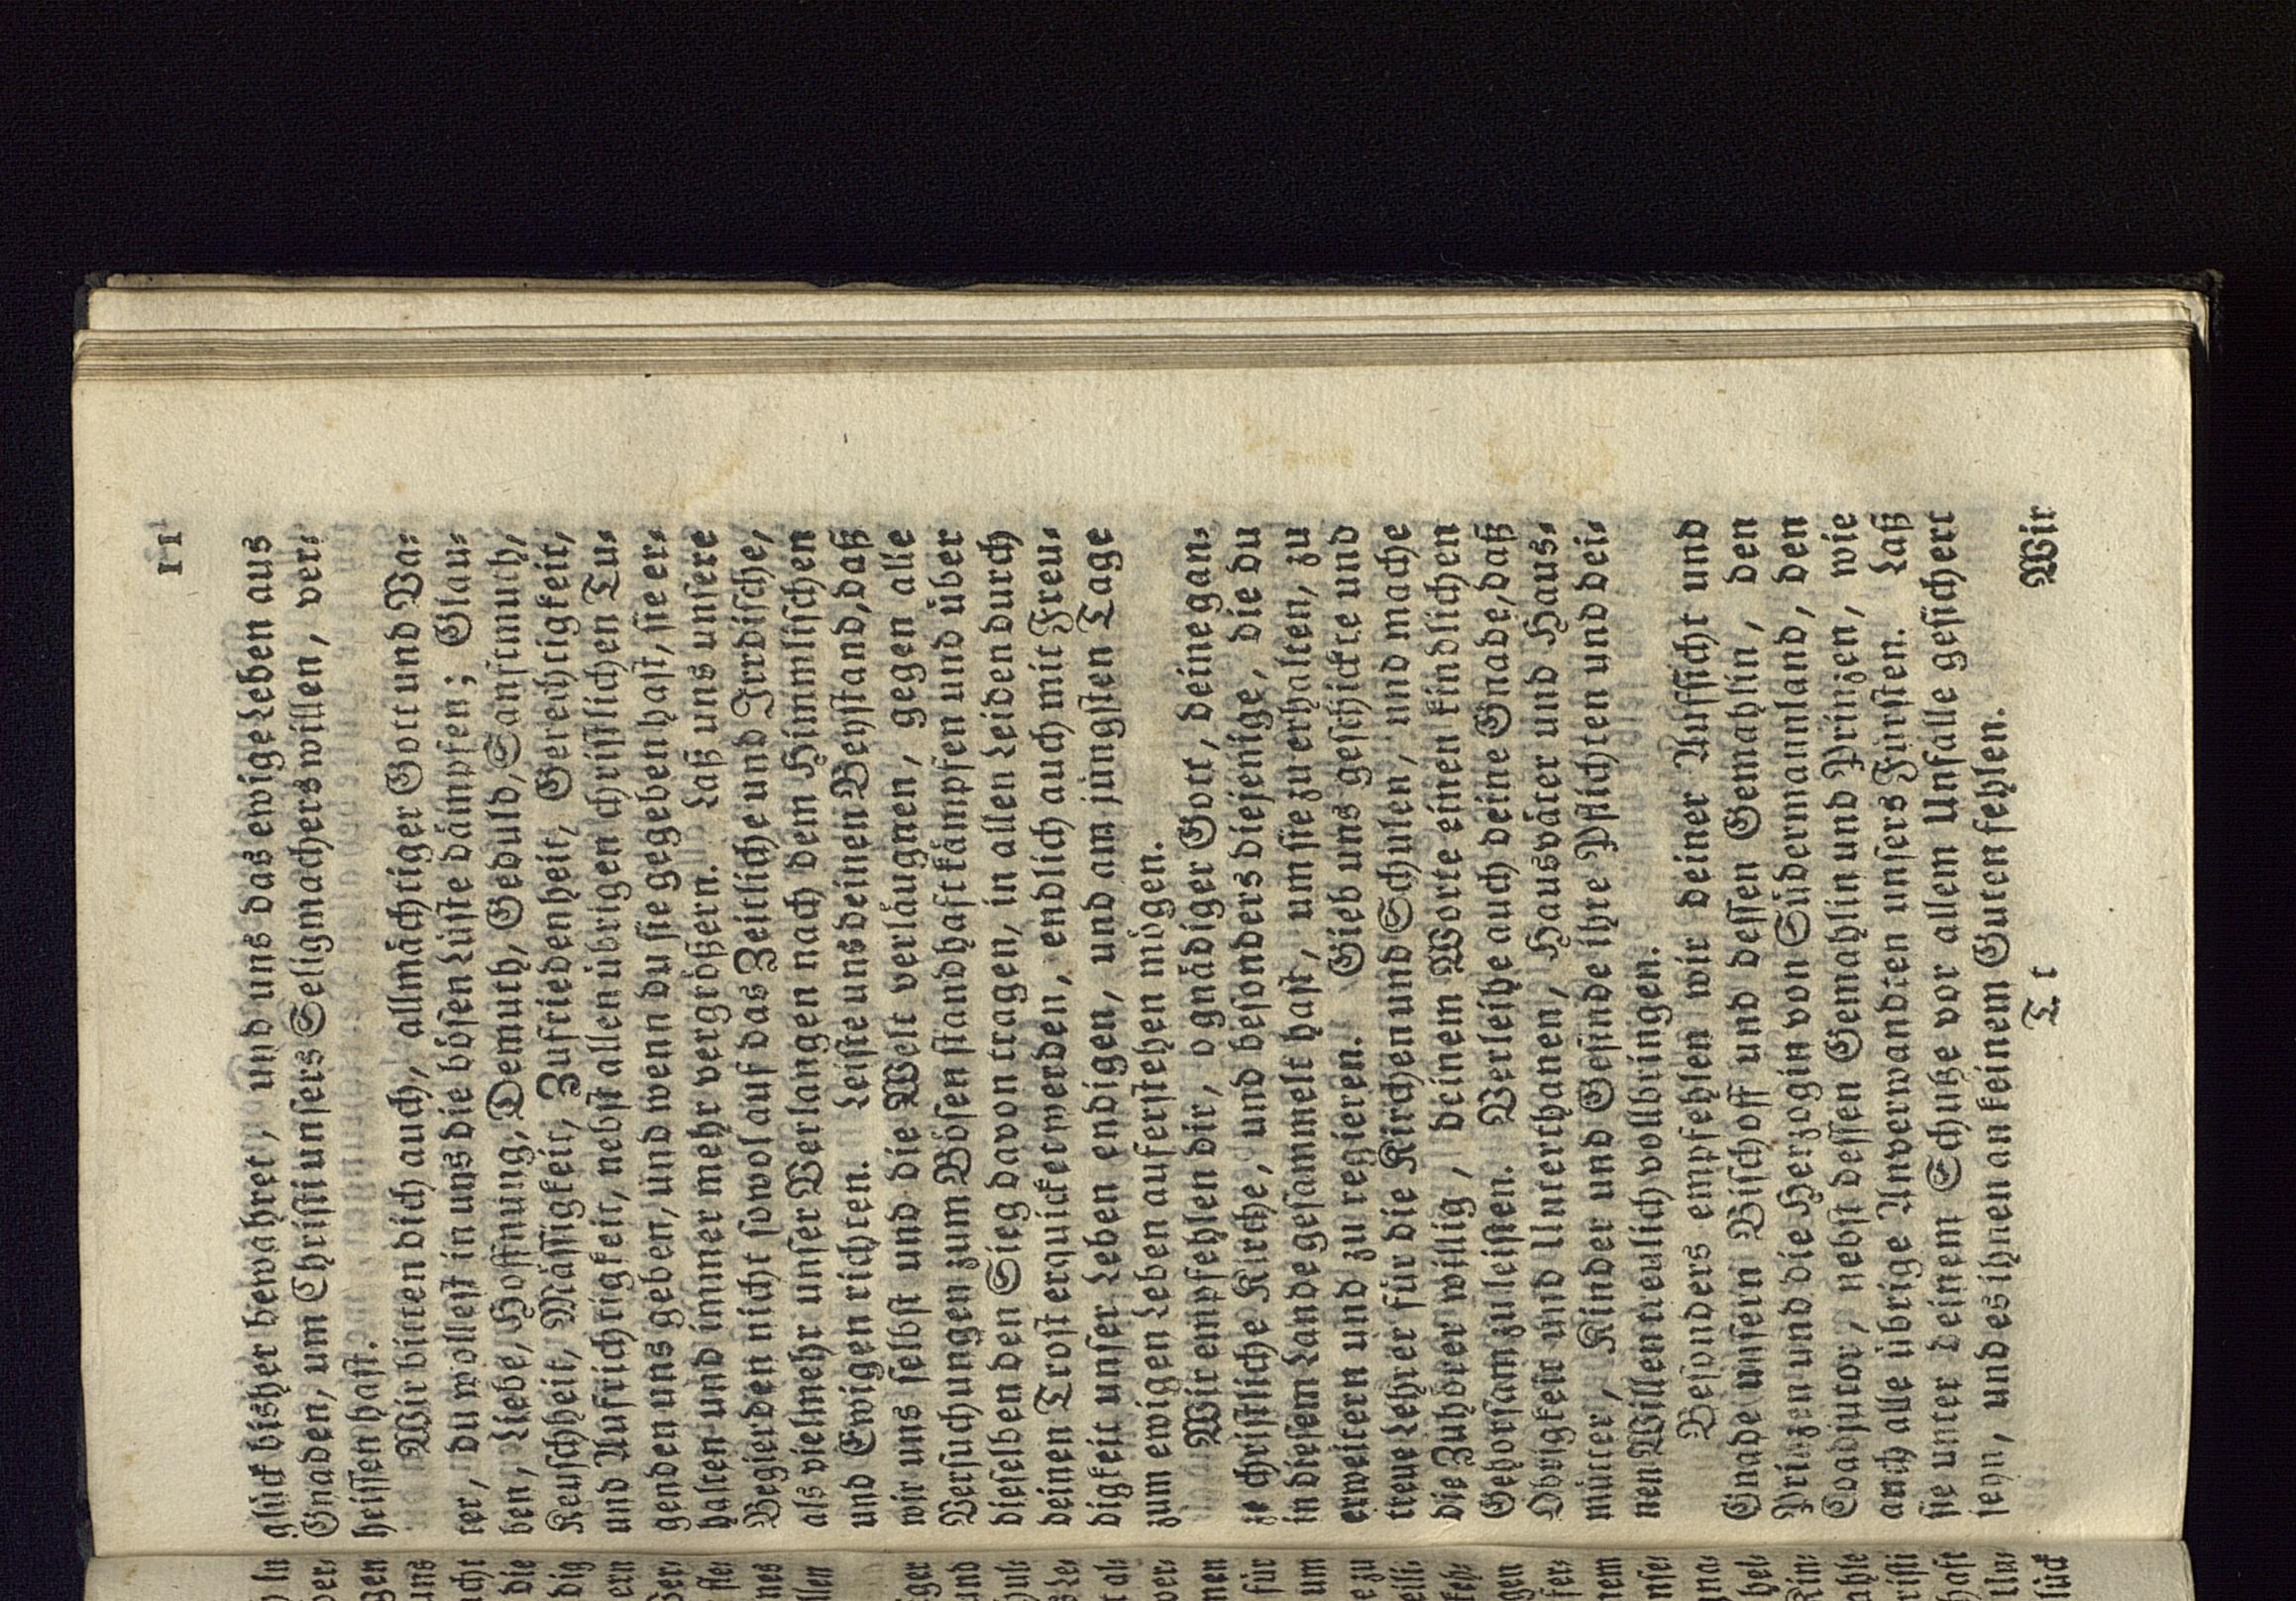 11
glück bisher bewahret, und uns das ewige Leben aus
Gnaden, um Christi unsers Seligmachers willen, ver-
heissen hast.
Wir bitten dich auch, allmächtiger Gott und Va-
ter, du wollest in uns die bösen Lüste dämpfen; Glau-
ben, Liebe, Hoffnung, Demuth, Geduld, Sanftmuth,
Keuschheit, Mässigkeit, Zufriedenheit, Gerechtigkeit,
und Aufrichtigkeit, nebst allen übrigen christlichen Tu-
genden uns geben, und wenn du sie gegeben hast, sie er-
halten und immer mehr vergrößern. Laß uns unsere
Begierden nicht sowol auf das Zeitliche und Irrdische,
als vielmehr unser Verlangen nach dem Himmlischen
und Ewigen richten. Leiste uns deinen Beystand, daß
wir uns selbst und die Welt verläugnen, gegen alle
Versuchungen zum Bösen standhaft kämpfen und über
dieselben den Sieg davon tragen, in allen Leiden durch
deinen Trost erquicket werden, endlich auch mit Freu-
digkeit unser Leben endigen, und am jüngsten Tage
zum ewigen Leben auferstehen mögen.
Wir empfehlen dir, o gnädiger Gott, deine gan-
ze christliche Kirche, und besonders diejenige, die du
in diesem Lande gesammelt hast, um sie zu erhalten, zu
erweitern und zu regieren. Gieb uns geschickte und
treue Lehrer für die Kirchen und Schulen, und mache
die Zuhörer willig, deinem Worte einen kindlichen
Gehorsam zu leisten. Verleihe auch deine Gnade, daß
Obrigkeit und Unterthanen, Hausväter und Haus-
mütter, Kinder und Gesinde ihre Pflichten und dei-
nen Willen treulich vollbringen.
Besonders empfehlen wir deiner Aufsicht und
Gnade unsern Bischoff und dessen Gemahlin, den
Prinzen und die Herzogin von Südermannland, den
Coadjutor, nebst dessen Gemahlin und Prinzen, wie
auch alle übrige Anverwandten unsers Fürsten. Laß
sie unter deinem Schutze vor allem Unfalle gesichert
seyn, und es ihnen an keinem Guten fehlen.
Tt Wir